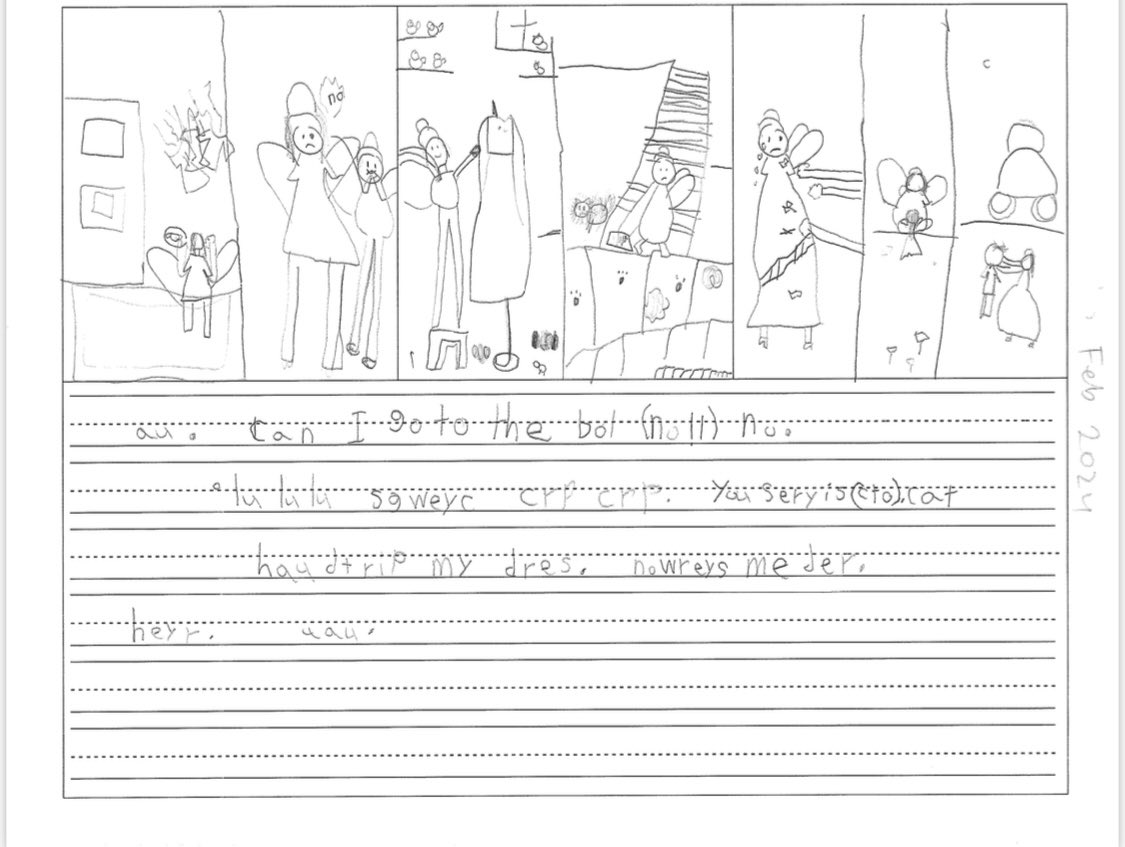 no
au. Can I go to the bol (null) no.
lu lu lu sgweyc crp crp. You sery is (cto). cat
haud trip my dres. nowreys me der.
heyr. uau.
Feb 2024